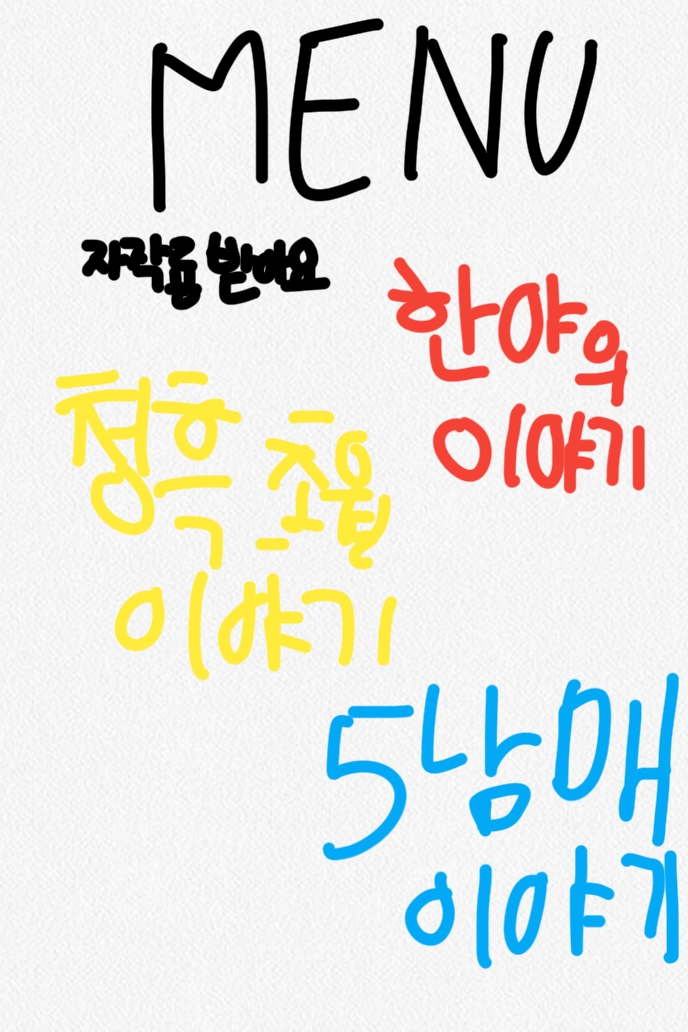 MENU
자작룜 받아요
한야의
이야기
청흑 초월
이야기
5남매
이야기